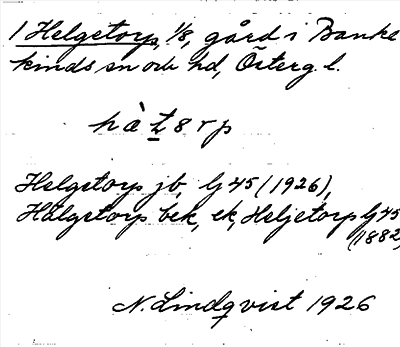 1 Helgetorp, 1/8, gård i Banke
kinds sn och hd, Österg. l.
hà t 8 r p
Helgetorp jb, Gj 45 (1926),
Hälgetorp bek, ek, Heljetorp Gj 45
(1882)
N. Lindqvist 1926